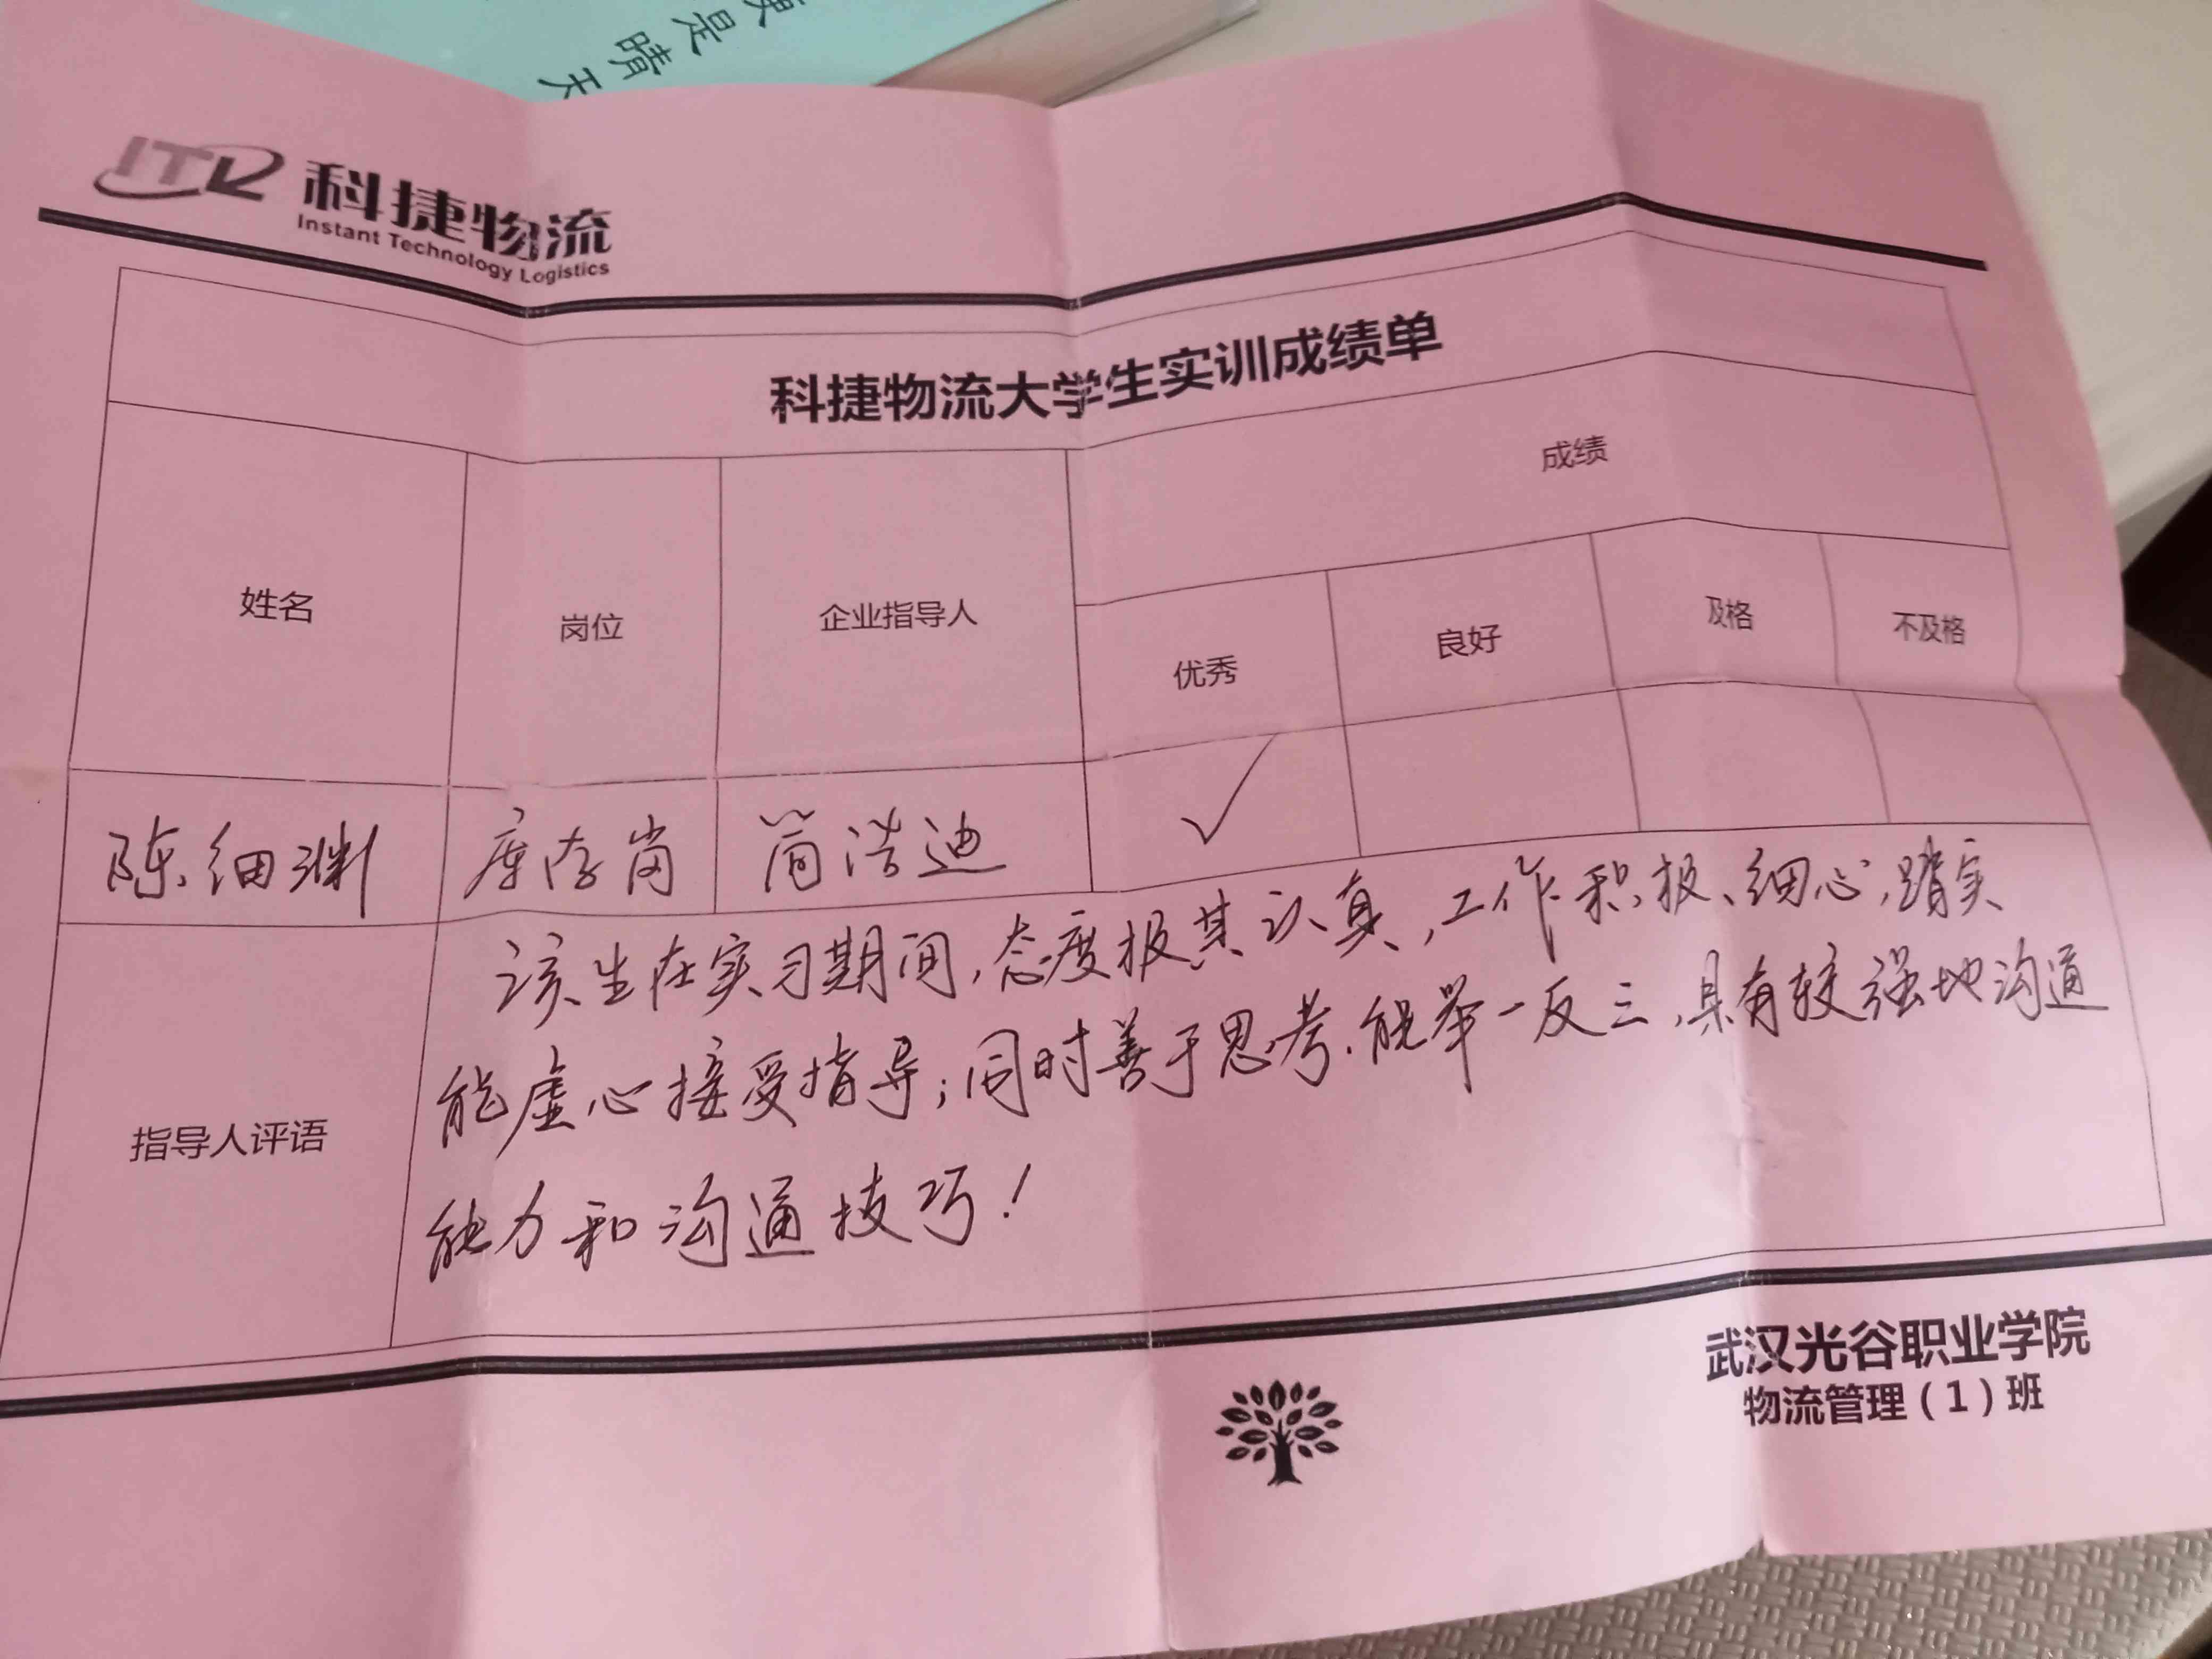 是晴天
ITL 科捷物流
Instant Technology Logistics
科捷物流大学生实训成绩单
姓名 岗位 企业指导人 成绩
优秀 良好 及格 不及格
陈细渊 库存岗 简浩迪 ✓
指导人评语
该生在实习期间,态度极其认真,工作积极、细心,踏实
能虚心接受指导;同时善于思考.能举一反三,具有较强地沟通
能力和沟通技巧!
武汉光谷职业学院
物流管理(1)班